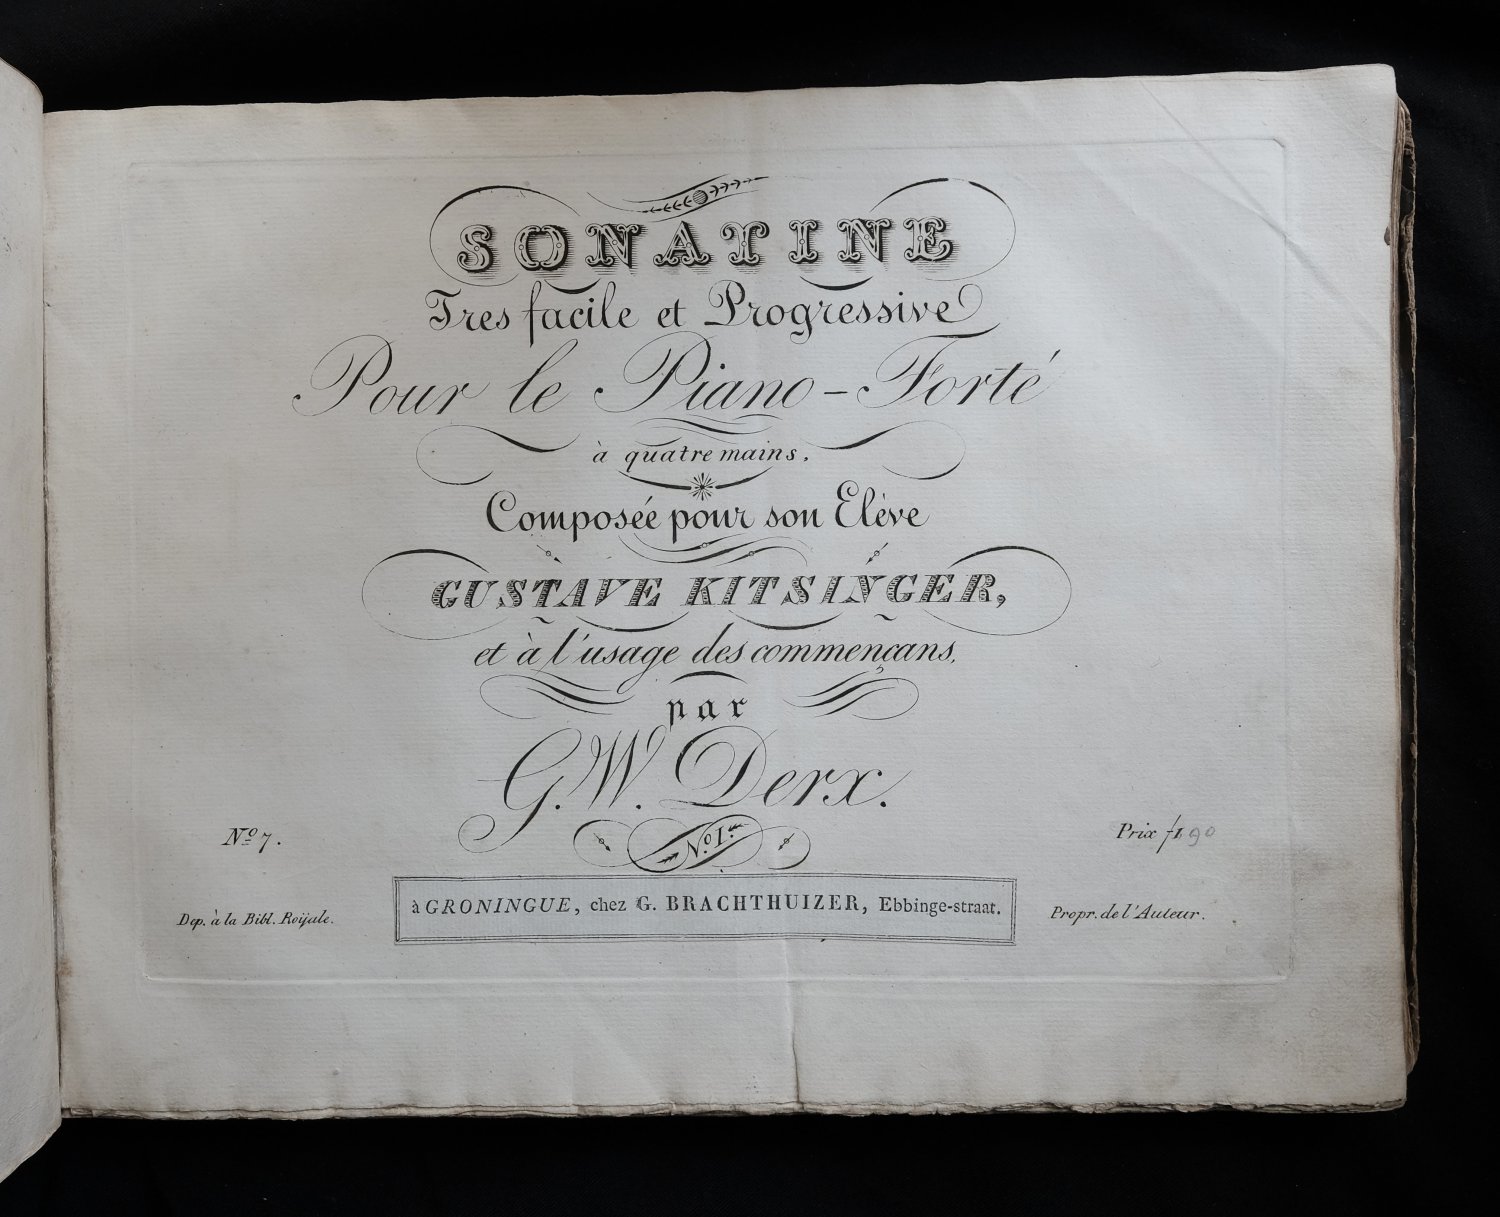 SONATINE
Tres facile et Progressive
Pour le Piano-Forté
à quatre mains.
Composée pour son Elève
GUSTAVE KITSINGER,
et à l'usage des commençans,
par
G.W. Derx.
No 7.
No. 1.
Prix f1 90
Dep. à la Bibl. Roÿale.
à GRONINGUE, chez G. BRACHTHUIZER, Ebbinge-straat.
Propr. de l'Auteur.